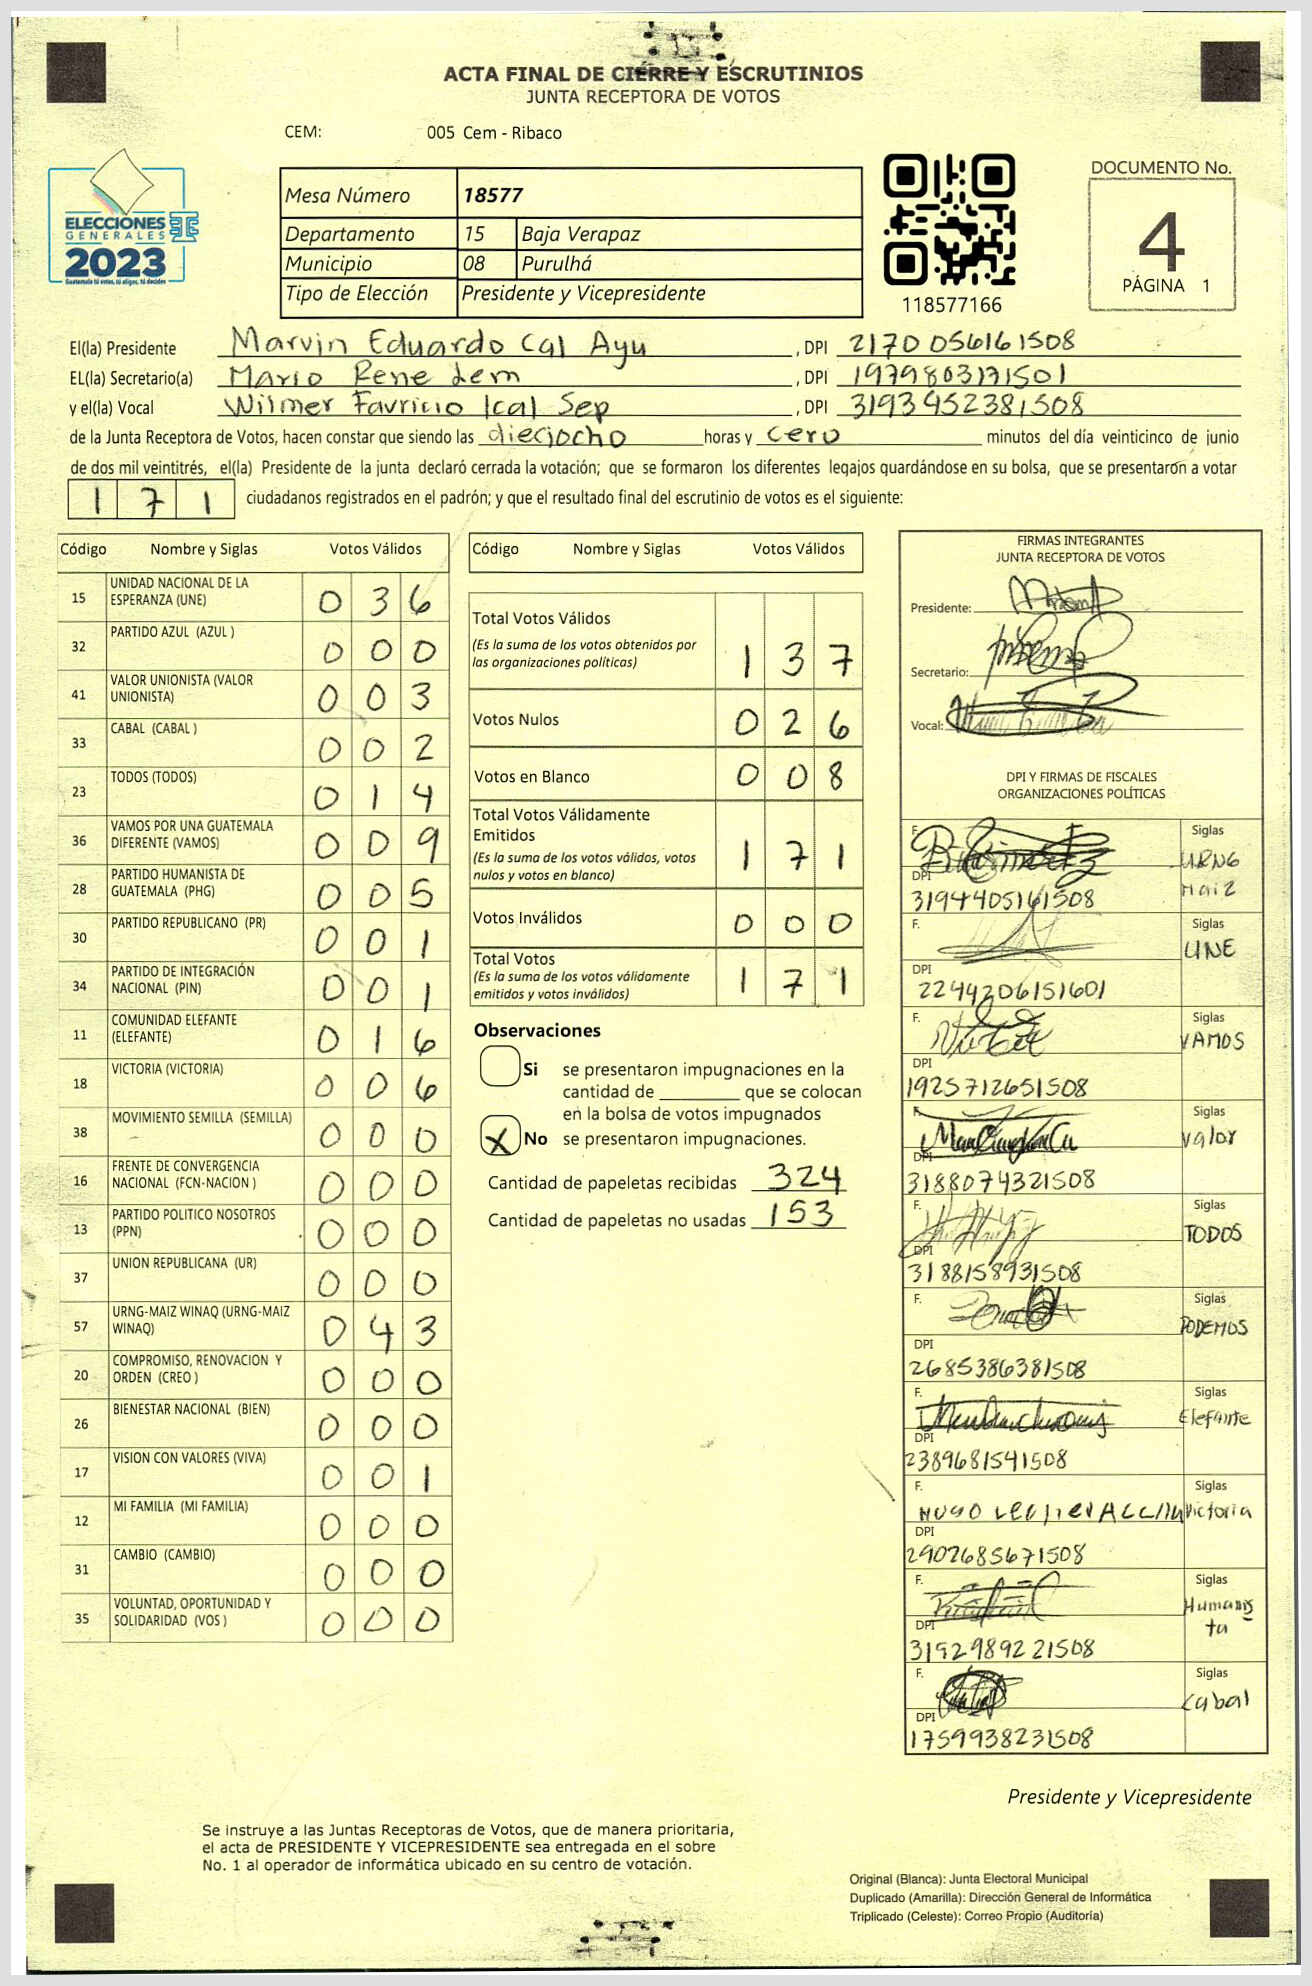 ACTA FINAL DE CIERRE Y ESCRUTINIOS
JUNTA RECEPTORA DE VOTOS
CEM: 005 Cem - Ribaco
ELECCIONES
GENERALES
2023
Guatemala tú votas, tú eliges, tú decides
Mesa Número 18577
Departamento 15 Baja Verapaz
Municipio 08 Purulhá
Tipo de Elección Presidente y Vicepresidente
118577166
DOCUMENTO No.
4
PÁGINA 1
El(la) Presidente Marvin Eduardo Cal Ayu , DPI 2170 056161508
EL(la) Secretario(a) Mario Rene Lem , DPI 1979803171501
y el(la) Vocal Wilmer Favricio Ical Sep , DPI 3193452381508
de la Junta Receptora de Votos, hacen constar que siendo las dieciocho horas y cero minutos del día veinticinco de junio
de dos mil veintitrés, el(la) Presidente de la junta declaró cerrada la votación; que se formaron los diferentes legajos guardándose en su bolsa, que se presentaron a votar
171 ciudadanos registrados en el padrón; y que el resultado final del escrutinio de votos es el siguiente:
Código Nombre y Siglas Votos Válidos
15 UNIDAD NACIONAL DE LA ESPERANZA (UNE) 0 3 6
32 PARTIDO AZUL (AZUL ) 0 0 0
41 VALOR UNIONISTA (VALOR UNIONISTA) 0 0 3
33 CABAL (CABAL ) 0 0 2
23 TODOS (TODOS) 0 1 4
36 VAMOS POR UNA GUATEMALA DIFERENTE (VAMOS) 0 0 9
28 PARTIDO HUMANISTA DE GUATEMALA (PHG) 0 0 5
30 PARTIDO REPUBLICANO (PR) 0 0 1
34 PARTIDO DE INTEGRACIÓN NACIONAL (PIN) 0 0 1
11 COMUNIDAD ELEFANTE (ELEFANTE) 0 1 6
18 VICTORIA (VICTORIA) 0 0 6
38 MOVIMIENTO SEMILLA (SEMILLA) 0 0 0
16 FRENTE DE CONVERGENCIA NACIONAL (FCN-NACION ) 0 0 0
13 PARTIDO POLITICO NOSOTROS (PPN) 0 0 0
37 UNION REPUBLICANA (UR) 0 0 0
57 URNG-MAIZ WINAQ (URNG-MAIZ WINAQ) 0 4 3
20 COMPROMISO, RENOVACION Y ORDEN (CREO ) 0 0 0
26 BIENESTAR NACIONAL (BIEN) 0 0 0
17 VISION CON VALORES (VIVA) 0 0 1
12 MI FAMILIA (MI FAMILIA) 0 0 0
31 CAMBIO (CAMBIO) 0 0 0
35 VOLUNTAD, OPORTUNIDAD Y SOLIDARIDAD (VOS ) 0 0 0
Código Nombre y Siglas Votos Válidos
Total Votos Válidos
(Es la suma de los votos obtenidos por
las organizaciones políticas) 1 3 7
Votos Nulos 0 2 6
Votos en Blanco 0 0 8
Total Votos Válidamente
Emitidos
(Es la suma de los votos válidos, votos
nulos y votos en blanco) 1 7 1
Votos Inválidos 0 0 0
Total Votos
(Es la suma de los votos válidamente
emitidos y votos inválidos) 1 7 1
Observaciones
Si se presentaron impugnaciones en la
cantidad de ________ que se colocan
en la bolsa de votos impugnados
X No se presentaron impugnaciones.
Cantidad de papeletas recibidas 324
Cantidad de papeletas no usadas 153
FIRMAS INTEGRANTES
JUNTA RECEPTORA DE VOTOS
Presidente:
Secretario:
Vocal:
DPI Y FIRMAS DE FISCALES
ORGANIZACIONES POLÍTICAS
F. Siglas
URNG
Maiz
DPI
3194405161508
F. Siglas
UNE
DPI
2244206151601
F. Siglas
VAMOS
DPI
1925712651508
F. Siglas
Valor
DPI
3188074321508
F. Siglas
TODOS
DPI
3188158931508
F. Siglas
PODEMOS
DPI
2685386381508
F. Siglas
Elefante
DPI
2389681541508
F. Siglas
Hugo Victoria
DPI
2902685671508
F. Siglas
Humanis
ta
DPI
3192989221508
F. Siglas
Cabal
DPI
1759938231508
Presidente y Vicepresidente
Se instruye a las Juntas Receptoras de Votos, que de manera prioritaria,
el acta de PRESIDENTE Y VICEPRESIDENTE sea entregada en el sobre
No. 1 al operador de informática ubicado en su centro de votación.
Original (Blanca): Junta Electoral Municipal
Duplicado (Amarilla): Dirección General de Informática
Triplicado (Celeste): Correo Propio (Auditoría)